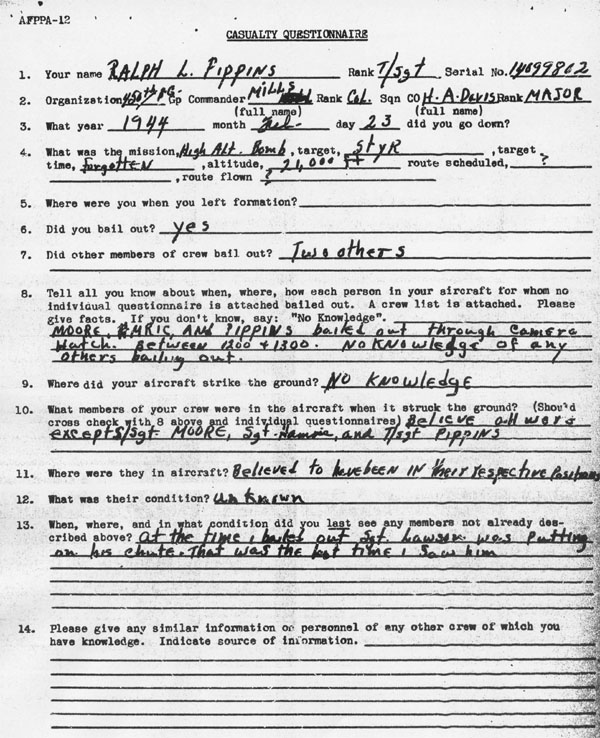 AFPPA-12
CASUALTY QUESTIONNAIRE
1. Your name RALPH L. PIPPINS Rank T/Sgt Serial No. 14099802
2. Organization 450th BG. Gp Commander MILLS Rank Col. Sqn CO H. A. DAVIS Rank MAJOR
(full name) (full name)
3. What year 1944 month Feb- day 23 did you go down?
4. What was the mission, High Alt. Bomb, target, StyR, target
time, forgotten, altitude, 21,000 ft route scheduled, ?
, route flown ?
5. Where were you when you left formation?
6. Did you bail out? yes
7. Did other members of crew bail out? Two others
8. Tell all you know about when, where, how each person in your aircraft for whom no
individual questionnaire is attached bailed out. A crew list is attached. Please
give facts. If you don't know, say: "No Knowledge".
MOORE, AND PIPPINS bailed out through Camera
Hatch. Between 1200 + 1300. NO KNOWledge of any
others bailing out.
9. Where did your aircraft strike the ground? NO KNOWledge
10. What members of your crew were in the aircraft when it struck the ground? (Should
cross check with 8 above and individual questionnaires) Believe all were
except S/Sgt. MOORE, Sgt. and T/sgt PIPPINS
11. Where were they in aircraft? Believed to have been IN their respective Positions
12. What was their condition? unknown
13. When, where, and in what condition did you last see any members not already des-
cribed above? At the time I bailed out Sgt. Lawson was Putting
on his chute. That was the last time I saw him
14. Please give any similar information on personnel of any other crew of which you
have knowledge. Indicate source of information.